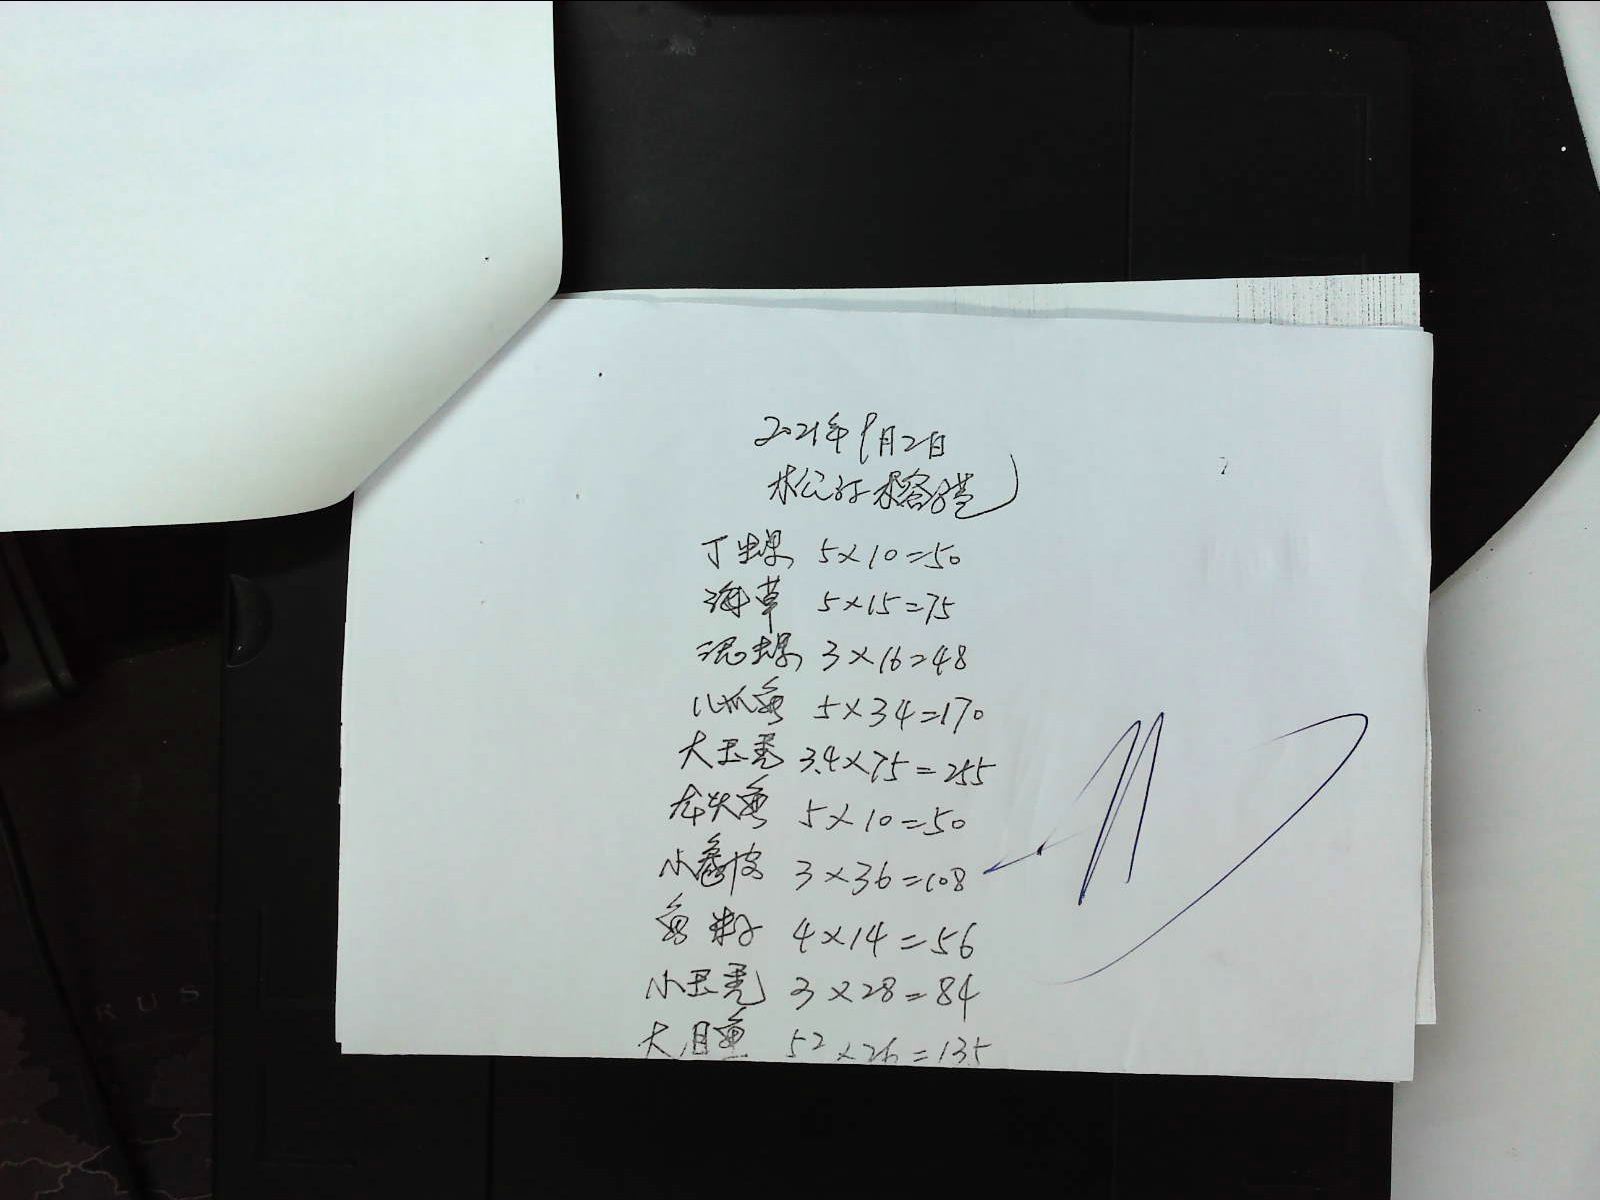 2021年9月2日
丁螺 5×10=50
海草 5×15=75
泥螺 3×16=48
八爪鱼 5×34=170
大玉秃 3.4×75=255
龙头鱼 5×10=50
小 皮 3×36=108
鱼籽 4×14=56
小玉秃 3×28=84
大目鱼 52×26=135
RUS